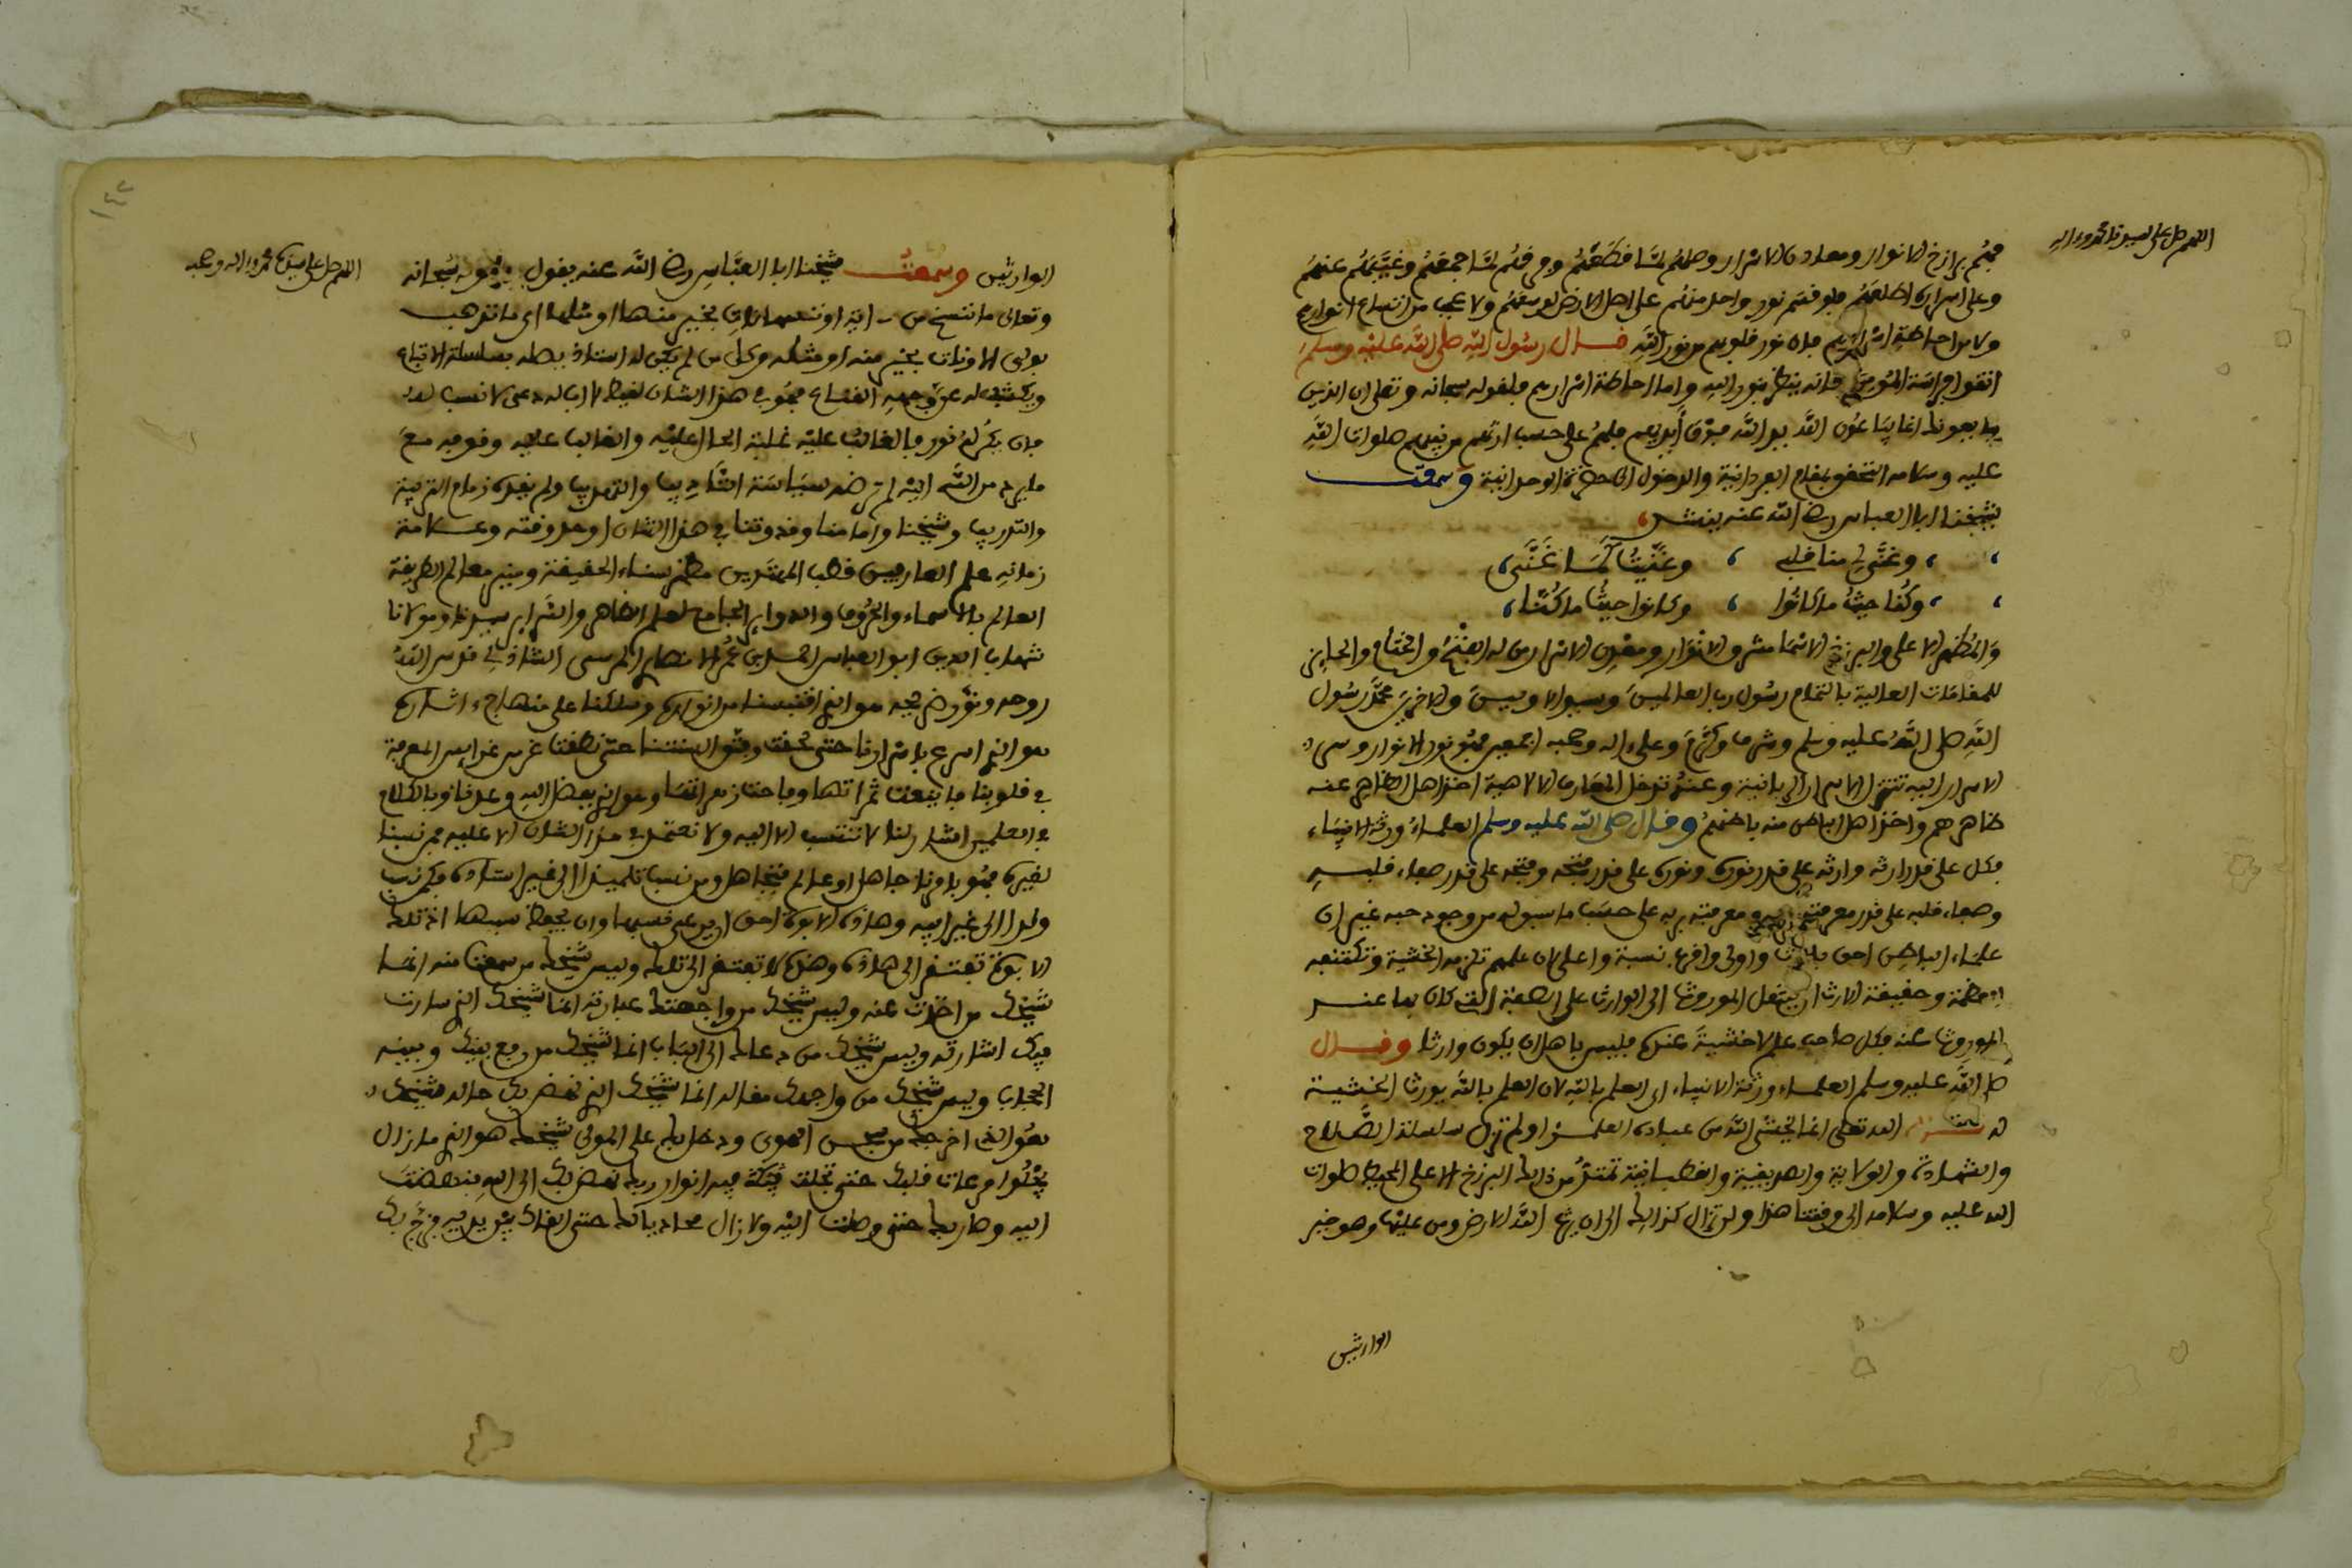 اللهم صل على سيدنا محمد وءاله
فهم برازخ الانوار ومعادن الاسرار وصلهم لما قطعهم وفرقهم لما جمعهم وغيبهم عنهم
وعلى اسراره اطلعهم فلو قسم نور واحد منهم على اهل الارض لوسعهم ولا عجب من اتساع انوارهم
ولا من احاطة اسرارهم فان نور قلوبهم من نور الله قال رسول الله صلى الله عليه وسلم
اتقوا فراسة المؤمن فانه ينظر بنور الله واما احاطة اسرارهم فلقوله سبحانه وتعلى ان الذين
يبايعونك انما يبايعون الله يد الله فوق أيديهم فلهم على حسب ارثهم من نبيهم صلوات الله
عليه وسلامه التحقق بمقام الفردانية والدخول الى حضرة الوحدانية وسمعت
شيخنا ابا العباس رضي الله عنه ينشد
وغنى لي منا قلبي وغنيت كما غنى
وكنا حيث ما كانوا وكانوا حيث ما كنا
والمظهر الاعلى والبرزخ الاسما مشرق الانوار ومعدن الاسرار من له الفتح والختام والحايز
للمقامات العالية بالتمام رسول رب العالمين وسيد الاولين والاخرين محمد رسول
الله صلى الله عليه وسلم وشرف وكرم وعلى ءاله وصحبه اجمعين فهو نور الانوار وسر
الاسرار اليه تنتهي الاسرار الربانية وعنه توخذ المعارف الالاهية اخذ اهل الظاهر عنه
ظاهرهم واخذ اهل الباطن منه باطنهم وقال صلى الله عليه وسلم العلماء ورثة الانبياء
فكل على قدر ارثه وارثه على قدر نوره ونوره على قدر فتحه وفتحه على قدر صفاء قلبه
وصفاء قلبه على قدر معرفته بربه ومعرفته بربه على حسب ما سبق له من وجود حبه غير ان
علماء الباطن احق بالارث واولى واقرب نسبة واعلى لان علمهم تلزمه الخشية وتكتنفه
العظمة وحقيقة الارث ان ينتقل الموروث الى الوارث على الصفة التي كان بها عند
الموروث عنه فكل صاحب علم لا خشية عنده فليس باهل ان يكون وارثا وقال
صلى الله عليه وسلم العلماء ورثة الانبياء اي العلم بالله لان العلم بالله يورث الخشية
الله تعلى انما يخشى الله من عباده العلماء ولم تزل سلسلة الصلاح
والشهادة والولاية والصديقية والقطبانية تمتد من ذلك البرزخ الاعلى المحيط صلوات
الله عليه وسلامه الى وقتنا هذا ولن تزال كذلك الى ان يرث الله الارض ومن عليها وهو خير
الوارثين
١٤٢
اللهم صل على سيدنا محمد وءاله وصحبه
الوارثين وسمعت شيخنا ابا العباس رضي الله عنه يقول في قوله سبحانه
وتعالى ما ننسخ من ءاية او ننسها نات بخير منها او مثلها اي ما نذهب
بولي الا ونات بخير منه او مثله وكل من لم يكن له استاذ يصله بسلسلة الاتباع
ويكشف له عن وجهه القناع فهو في هذا الشان لقيط لا اب له دعي لا نسب له
فان يكن له نور فالغالب عليه غلبة الحال عليه والغالب عليه وقوفه مع
ما يرد من الله اليه لم ترضه سياسة التاديب والتهذيب ولم يقده زمام التربية
والتدريب وشيخنا وامامنا وقدوتنا في هذا الشان اوحد وقته وعلامة
زمانه علم العارفين قطب المهتدين مظهر سناء الحقيقة ومبين معالم الطريقة
العالم بالاسماء والحروف والدواير الجامع لعلم الظاهر والسراير سيدنا ومولانا
شهاب الدين ابو العباس احمد بن عمر الانصاري المرسي الشاذلي قدس الله
روحه ونور ضريحه هو الذي اقتبسنا من انواره وسلكنا على منهاج ءاثاره
هو الذي اسرع باسرارنا حتى لحقت وفتق السنتنا حتى نطقت غرس غرايس المعرفة
في قلوبنا فاينعت ثمراتها وفاحت زهراتها وهو الذي بفضل الله وعدنا وبالكلام
في العلمين اشار لنا لا ننتسب الا اليه ولا نعتمد في هذا الشان الا عليه فمن نسبنا
لغيره فهو بامرنا جاهل او عالم متجاهل ومن نسب تلميذا الى غير استاذه فكمن نسب
ولدا الى غير ابيه وهاذه الابوة احق ان يرعى نسبها وان يحفظ سببها اذ تلك
الابوة تفتقر الى هاذه وهذه لا تفتقر الى تلك وليس شيخك من سمعت منه انما
شيخك من اخذت عنه وليس شيخك من واجهتك عبارته انما شيخك الذي سارت
فيك اشارته وليس شيخك من دعاك الى الباب انما شيخك من رفع بينك وبينه
الحجاب وليس شيخك من واجهك مقاله انما شيخك الذي نهض بك حاله شيخك
هو الذي اخرجك من سجن الهوى ودخل بك على المولى شيخك هو الذي ما زال
يجلو مرءات قلبك حتى تجلت فيك فيه انوار ربك نهض بك الى الله فنهضت
اليه وصار بك حتى وصلت اليه ولا زال محاذيا لك حتى القاك بين يديه فزج بك